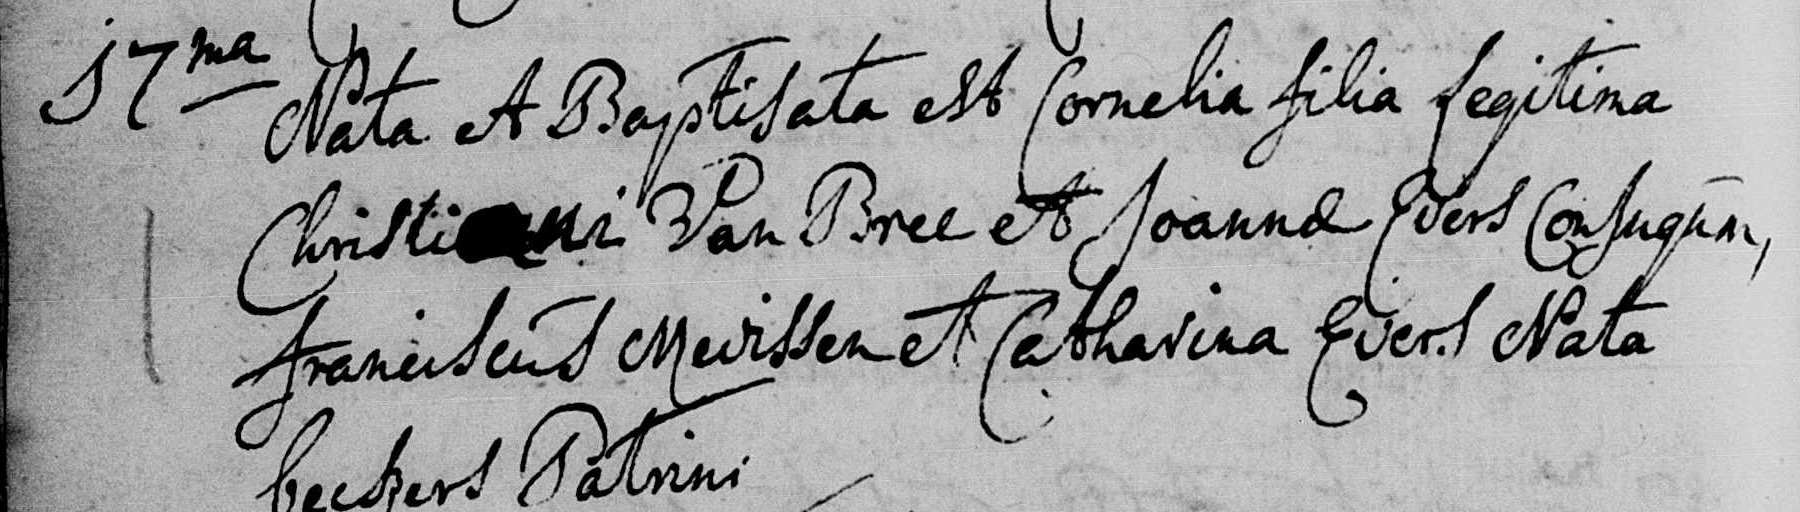 17ma Nata et Baptisata est Cornelia filia legitima
Christiani Van Bree et Joannæ Evers Conjugū,
franciscus Mevissen et Catharina Evers Nata
beckers Patrini